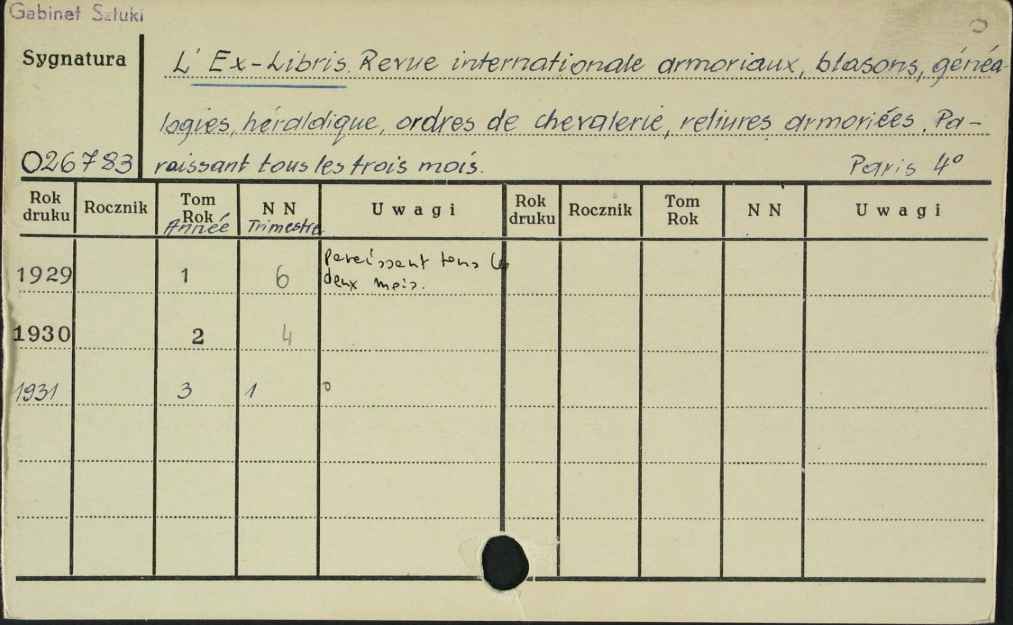 Gabinet Sztuki
Sygnatura
L' Ex-Libris. Revue internationale armoriaux, blasons, généa-
logies, héraldique, ordres de chevalerie, reliures armoriées. Pa-
026783 raissant tous les trois mois. Paris 4°
Rok druku Rocznik Tom Rok Année N N Trimestre Uwagi Rok druku Rocznik Tom Rok N N Uwagi
1929 1 6 Pareissant tous les
deux mois.
1930 2 4
1931 3 1 °